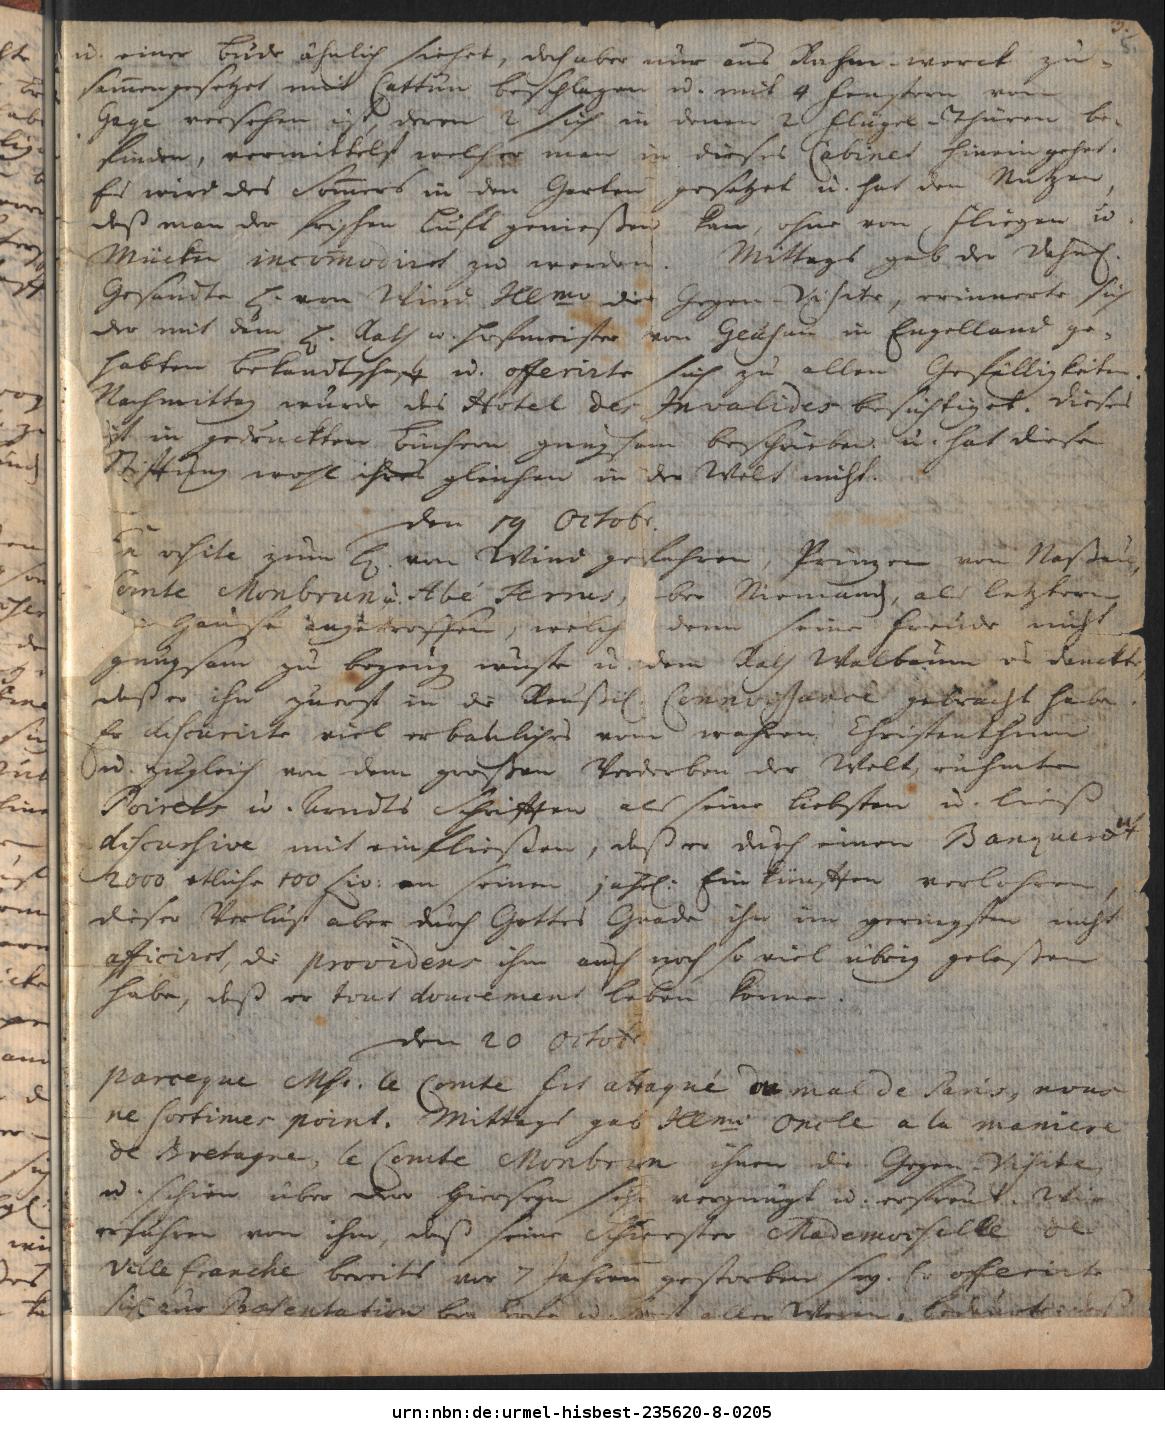 u. einer Bude ähnlich siehet, doch aber nur aus Rahm-werck zu-
sam̄engesetzet mit Cattun beschlagen u. mit 4 Fenstern von
Gaze versehen ist, deren 2 sich in denen 2 Flügel-Thüren be-
finden, vermittelst welcher man in dieses Cabinet hinein gehet.
Es wird des Som̄ers in den Garten gesetzet u. hat den Nutzen,
daß man der frischen Lufft genießen kan, ohne von Fliegen u.
Mücken incom̄odiret zu werden. Mittags gab der Dähn.
Gesandte H. von Wind Ill̄mo die Gegen-Visite, erinnerte sich
der mit dem H. Rath u. Hofmeister von Geusau in Engelland ge-
habten bekandtschafft u. offerirte sich zu allen Gefälligkeiten.
Nachmittag wurde das Hotel des Invalides besichtiget. Dieses
ist in gedruckten Büchern gnugsam beschrieben u. hat diese
Stifftung wohl ihres gleichen in der Welt nicht.
den 19 Octobr.
visite zum H. von Wind gefahren, Prinzen von Naßau,
Comte Monbrun u. Abé Ternus, aber Niemand, als letztern
Hause angetroffen, welcher denn seine Freude nicht
gnugsam zu bezeugen wuste u. dem Rath Walbaum es danckte,
daß er ihn zuerst in die Reußil. Connoissance gebracht habe.
Er discurirte viel erbauliches vom wahren Christenthum
u. zugleich von dem großen Verderben der Welt, rühmte
Poirets u. Arndts Schrifften als seine liebsten u. ließ
discursive mit einfließen, daß er durch einen Banquerout
2000 etliche 100 Liv: an seinen jährl: Einkünfften verlohren,
dieser Verlust aber durch Gottes Gnade ihn im geringsten nicht
afficiret, die providenz ihm auch noch so viel übrig gelaßen
habe, daß er tout doucement leben könne.
den 20 Octobr.
parceque Msr. le Comte fut attaqué du mal de Paris, nous
ne sortimes point. Mittags gab Ill̄mi Oncle a la maniere
de Bretagne, le Comte Monbrun ihnen die Gegen-Visite,
u. schien über dero Hierseyn sehr vergnügt u. erfreut. Wir
erfuhren von ihm, daß seine Schwester Mademoiselle de
Ville franche bereits vor 7 Jahren gestorben sey. Er offerirte
sich zur Praesentation bey Hofe u.